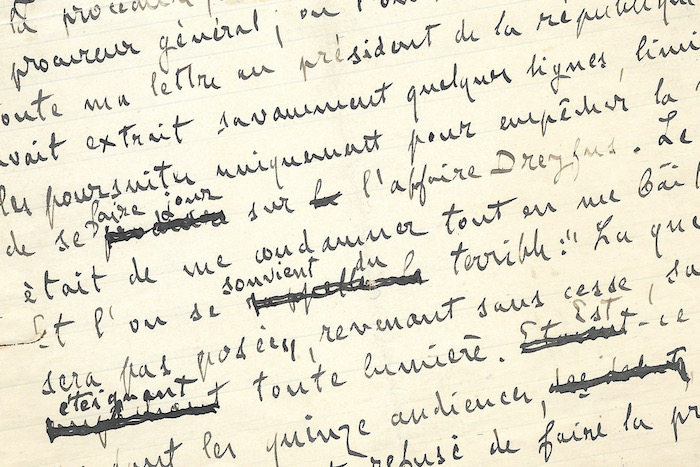 la procédure
procureur général ; on l'
toute ma lettre au président de la république
avait extrait savamment quelques lignes, limi
les poursuites uniquement pour empêcher la
de se faire jour sur l'affaire Dreyfus. Le
était de me condamner tout en me bâil
Et l'on se souvient du terrible : "La que
sera pas posée", revenant sans cesse, sa
éteignant toute lumière. Est-ce
les quinze audiences,
refusé de faire la pr